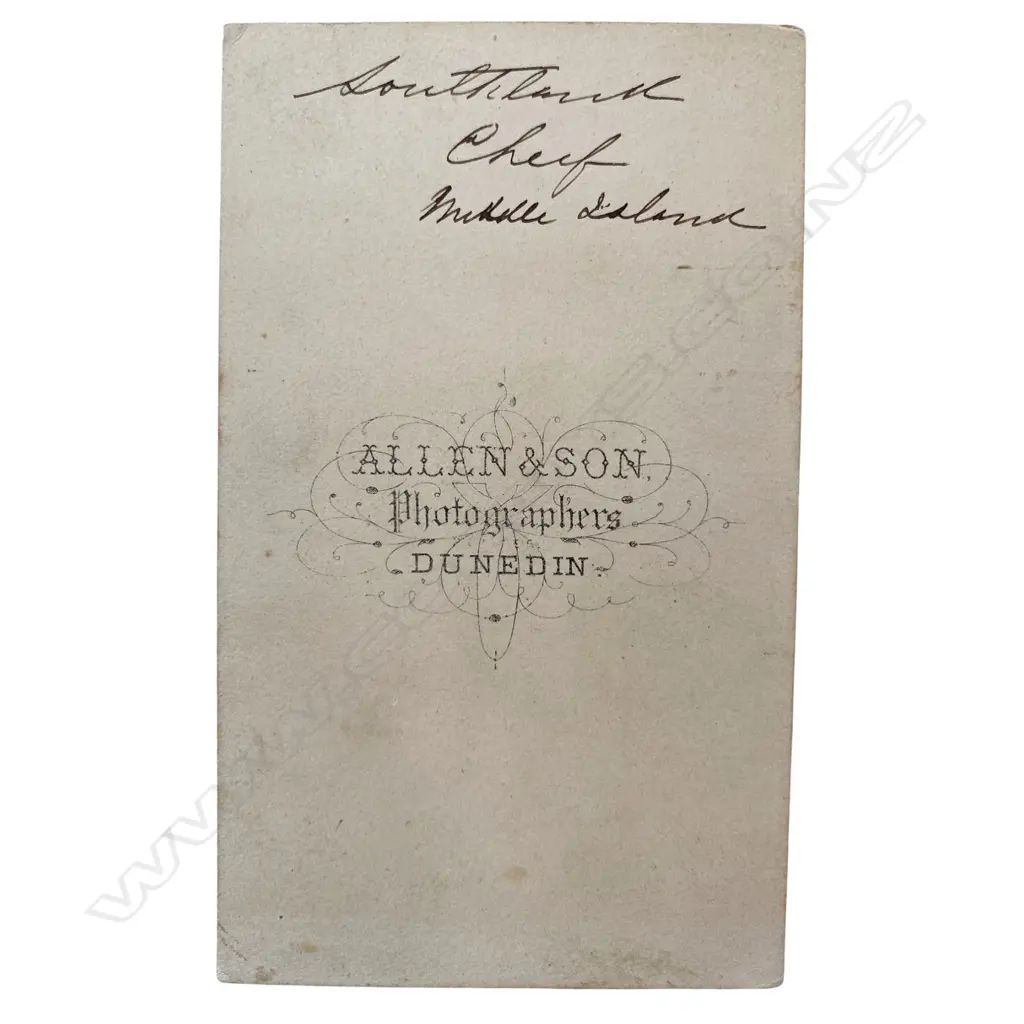 Southland
Cheif
Middle Island
ALLEN & SON,
Photographers
DUNEDIN.